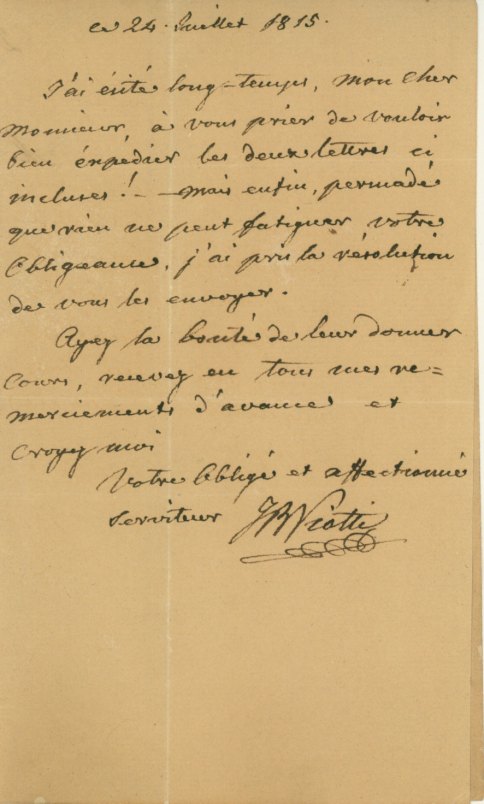 ce 24. Juillet 1815.
J'ai ésité long-temps, mon cher
Monsieur, à vous prier de vouloir
bien éxpédier les deux lettres ci
incluses! – mais enfin, persuadé
que rien ne peut fatiguer votre
Obligeance, j'ai pris la résolution
de vous les envoyer.
Ayez la bonté de leur donner
Cours, recevez en tous mes re=
merciements d'avance et
croyez moi
Votre Obligé et affectionné
Serviteur JBViotti